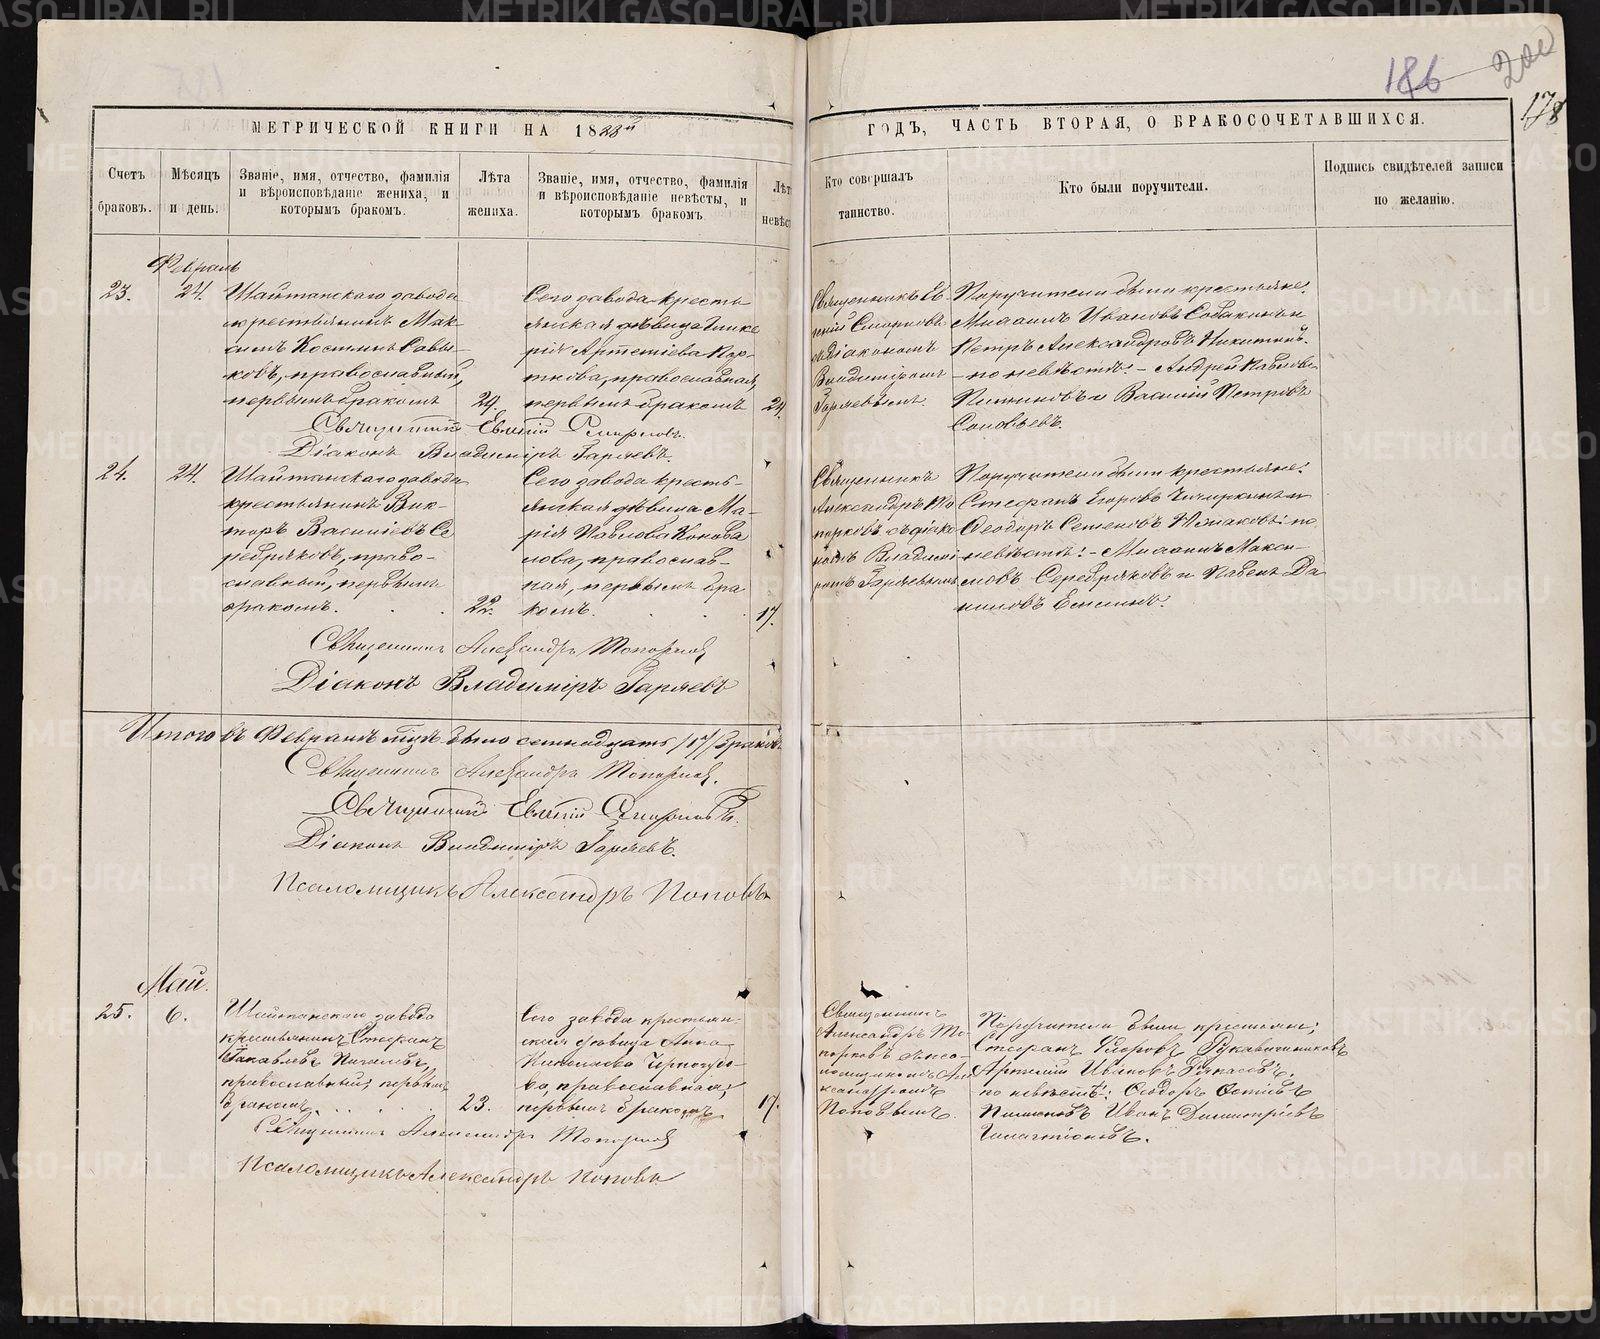 186
200
178
МЕТРИЧЕСКОЙ КНИГИ НА 1888й
ГОДЪ, ЧАСТЬ ВТОРАЯ, О БРАКОСОЧЕТАВШИХСЯ.
Счетъ браковъ.
Мѣсяцъ и день.
Званіе, имя, отчество, фамилія
и вѣроисповѣданіе жениха, и
которымъ бракомъ.
Лѣта жениха.
Званіе, имя, отчество, фамилія
и вѣроисповѣданіе невѣсты, и
которымъ бракомъ
Лѣт
невѣс
Кто совершалъ
таинство.
Кто были поручители.
Подпись свидѣтелей записи
по желанію.
Февраль
23.
24.
Шайтанскаго завода
крестьянинъ Мак-
симъ Костинъ Савы-
ковъ, православный,
первымъ бракомъ
29.
Сего завода кресть
янская дѣвица Глике
рія Артеміева Пор-
тнова, православная,
первымъ бракомъ
24
Священникъ Ев
геній Смирновъ
съ діакономъ
Владиміромъ
Гаряевымъ
Поручители были крестьяне:
Михаилъ Ивановъ Собакинъ и
Петръ Александровъ Никитинъ.
по невѣстѣ: Андрей Павловъ
и Василій Петровъ
Соловьевъ.
Священникъ Евгеній Смирновъ.
Діаконъ Владиміръ Гаряевъ.
24.
24.
Шайтанскаго завода
крестьянинъ Вик-
торъ Васильевъ Се
ребряковъ, право-
славный, первымъ
бракомъ.
22.
Сего завода кресть-
янская дѣвица Ма-
рія Павлова Конова
лова, православ-
ная, первымъ бра
комъ.
17.
Священникъ
Александръ То
порковъ съ діако
номъ Владимі
ромъ Гаряевымъ
Поручители были крестьяне:
Стефанъ Егоровъ и
Ѳеодоръ Семеновъ по
невѣстѣ: Михаилъ Макси-
мовъ Серебряковъ и Павелъ Да
ниловъ
Священникъ Александръ Топорковъ
Діаконъ Владиміръ Гаряевъ
Итого въ Февралѣ мѣсяцѣ было семнадцать /17/ браковъ.
Священникъ Александръ Топорковъ.
Священникъ Евгеній Смирновъ.
Діаконъ Владиміръ Гаряевъ.
Псаломщикъ Александръ Поповъ
Май.
25.
6.
Шайтанскаго завода
крестьянинъ Стефанъ
православный, первымъ
бракомъ
23.
Сего завода крестьян-
ская дѣвица Анна
Николаева Черногубо-
ва, православная,
первымъ бракомъ
17.
Священникъ
Александръ То
порковъ съ псало-
мщикомъ Але
ксандромъ
Поповымъ.
Поручители были крестьяне;
Стефанъ Рукавишниковъ
Артемій Ивановъ
по невѣстѣ: Ѳеодоръ
Иванъ Димитріевъ
Священникъ Александръ Топорковъ
Псаломщикъ Александръ Поповъ
METRIKI.GASO-URAL.RU